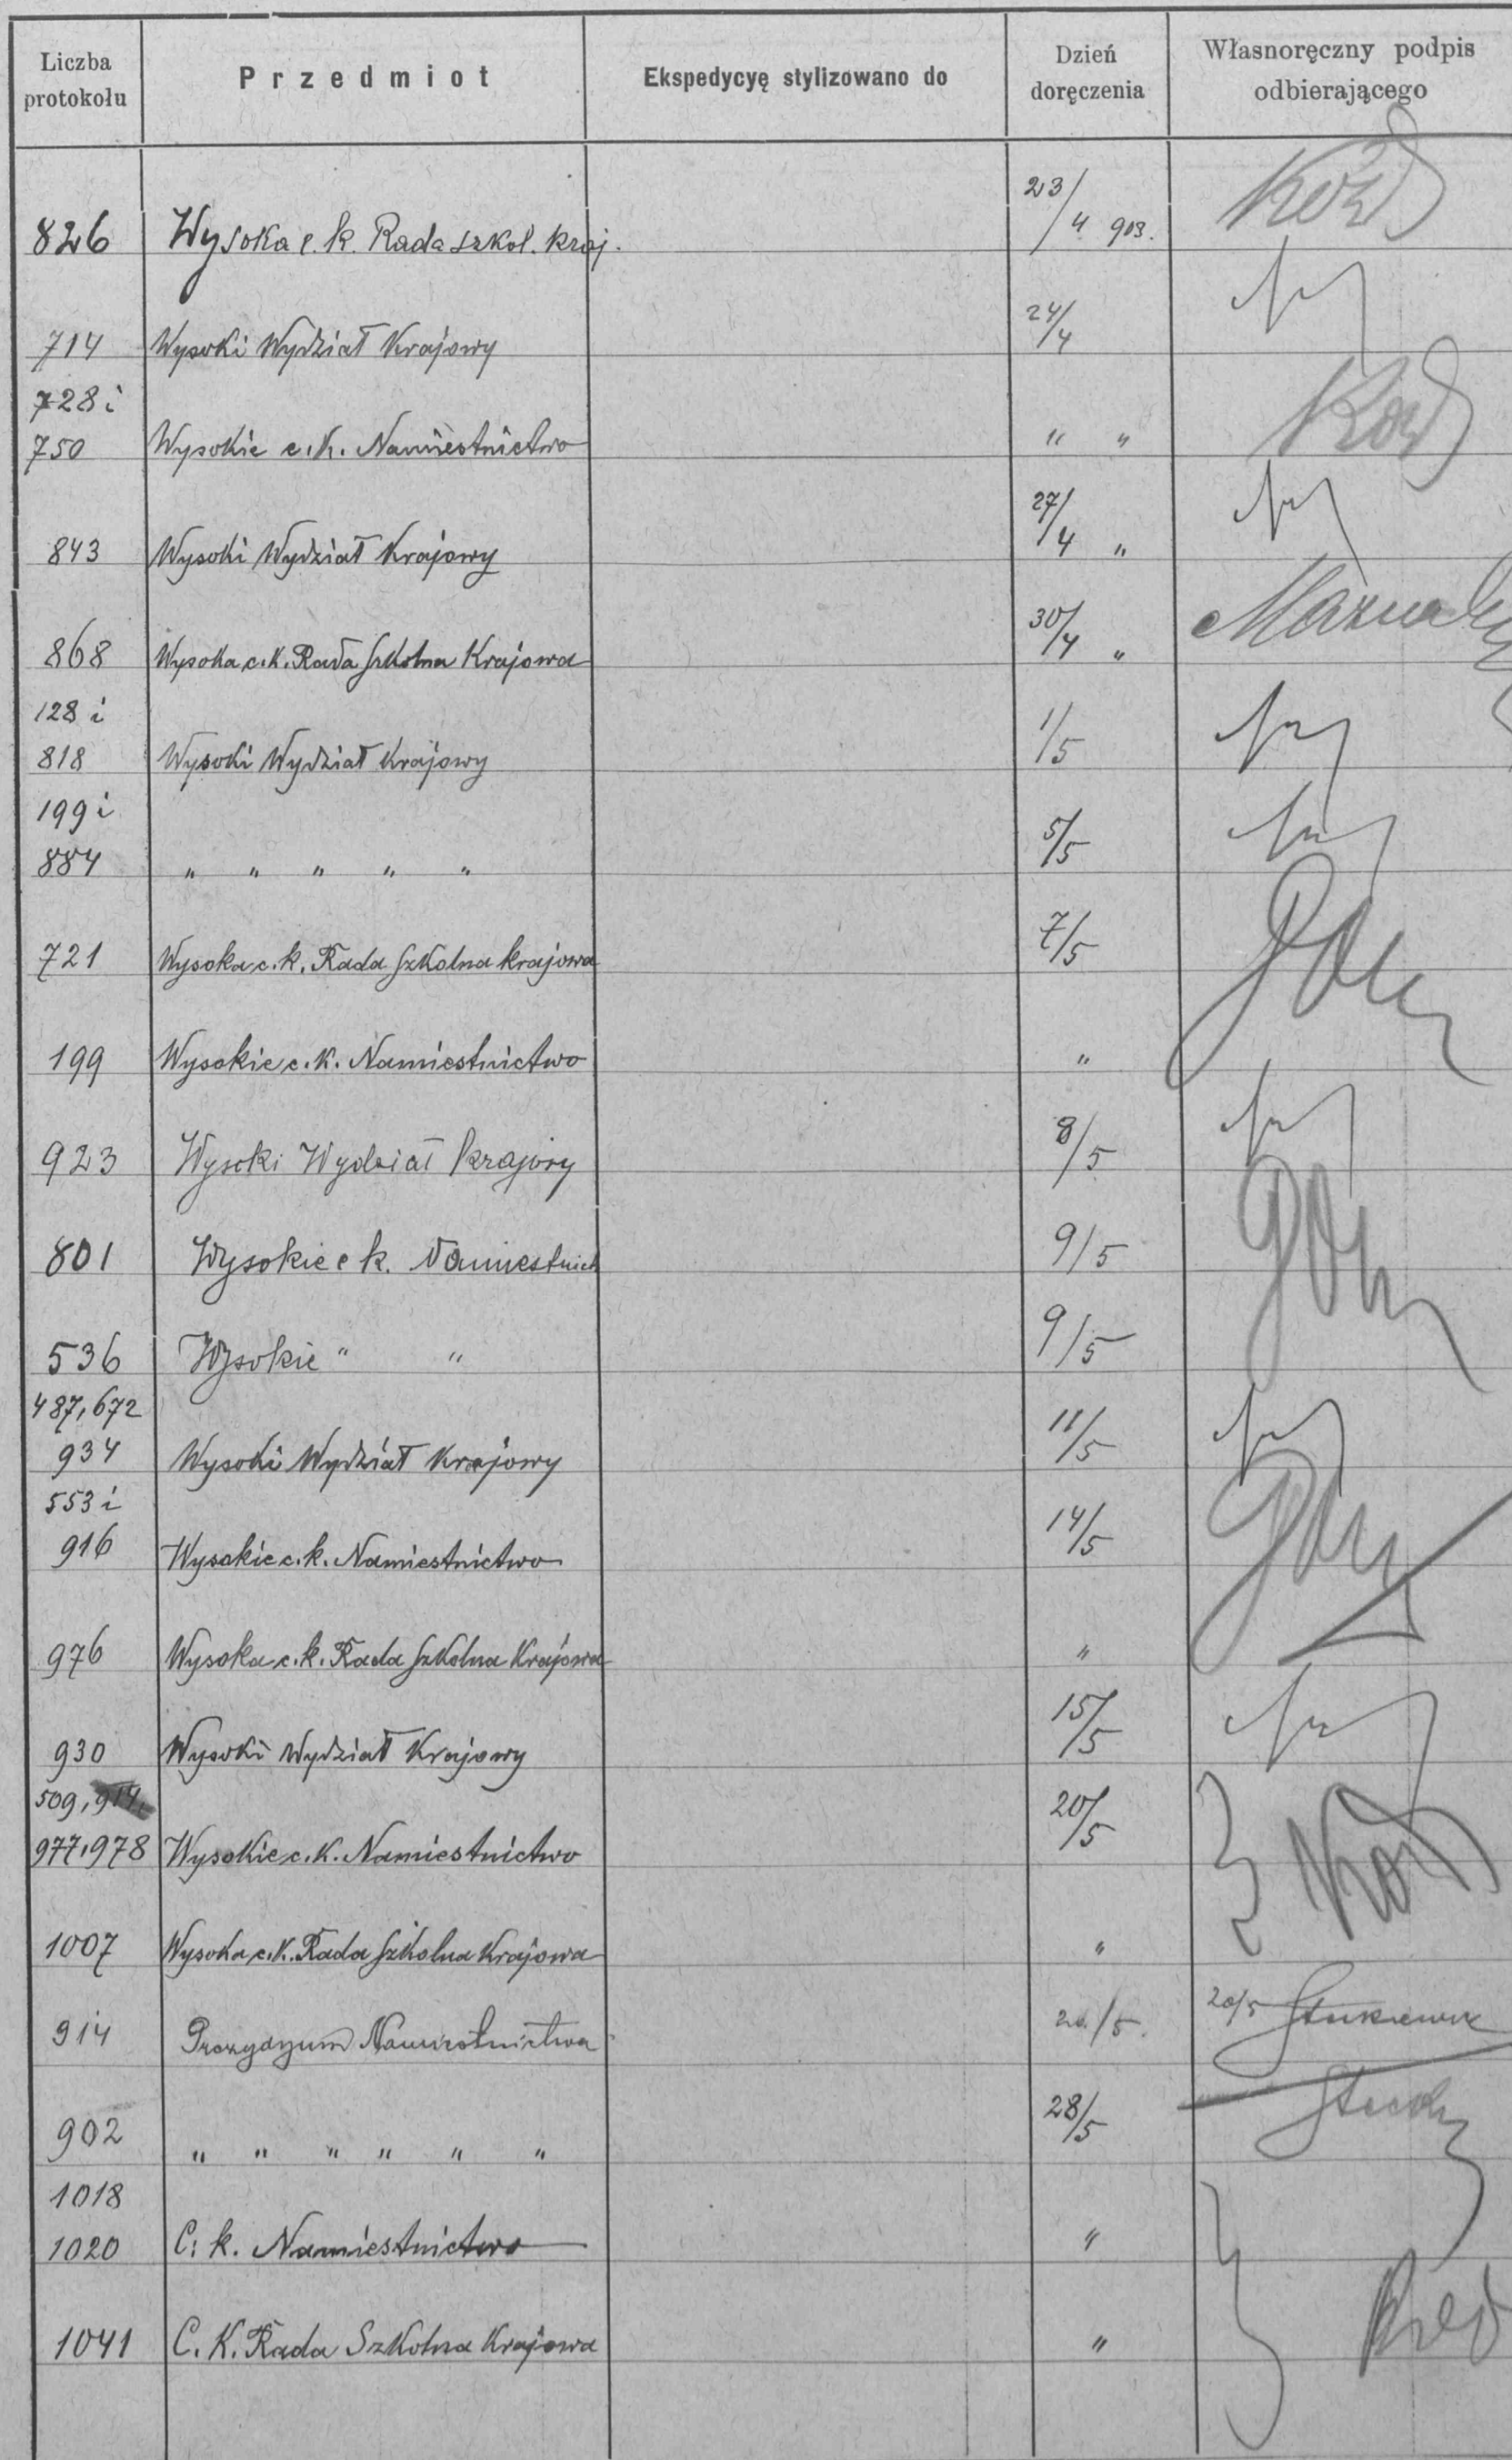 Liczba protokołu Przedmiot Ekspedycyę stylizowano do Dzień doręczenia Własnoręczny podpis odbierającego
23/4 903.
826 Wysoka c. k. Rada szkol. kraj.
714 Wysoki Wydział Krajowy 24/4
728 i
750 Wysokie c. k. Namiestnictwo " "
843 Wysoki Wydział Krajowy 27/4 "
868 Wysoka c. k. Rada Szkolna Krajowa 30/4 "
128 i
818 Wysoki Wydział Krajowy 1/5
199 i
884 " " " " " 5/5
721 Wysoka c. k. Rada Szkolna krajowa 7/5
199 Wysokie c. k. Namiestnictwo "
923 Wysoki Wydział krajowy 8/5
801 Wysokie c k. Namiestnict 9/5
536 Wysokie " " 9/5
487, 672
934 Wysoki Wydział Krajowy 11/5
553 i
916 Wysokie c. k. Namiestnictwo 14/5
976 Wysoka c. k. Rada Szkolna Krajowa "
930 Wysoki Wydział Krajowy 15/5
509, 914,
977, 978 Wysokie c. k. Namiestnictwo 20/5
1007 Wysoka c. k. Rada Szkolna Krajowa "
914 Prezydyum Namiestnictwa 20./5. 20/5
902 " " " " " " 28/5
1018
1020 C. k. Namiestnictwo "
1041 C. K. Rada Szkolna Krajowa "